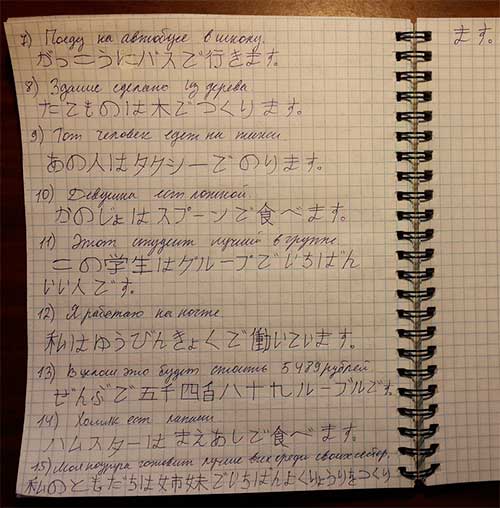 7) Поеду на автобусе в школу.
がっこうにバスで行きます。
8) Здание сделано из дерева
たてものは木でつくります。
9) Тот человек едет на такси
あの人はタクシーでのります。
10) Девушка ест ложкой
かのじょはスプーンで食べます。
11) Этот студент лучший в группе
この学生はグループでいちばん
いい人です。
12) Я работаю на почте
私はゆうびんきょくで働いています。
13) В целом это будет стоить 5489 рублей
ぜんぶで五千四百八十九ルーブルです。
14) Хомяк ест лапами
ハムスターはまえあしで食べます。
15) Моя подруга готовит лучше всех среди своих сестёр.
私のともだちは姉妹でいちばんよくりょうりをつくり
ます。